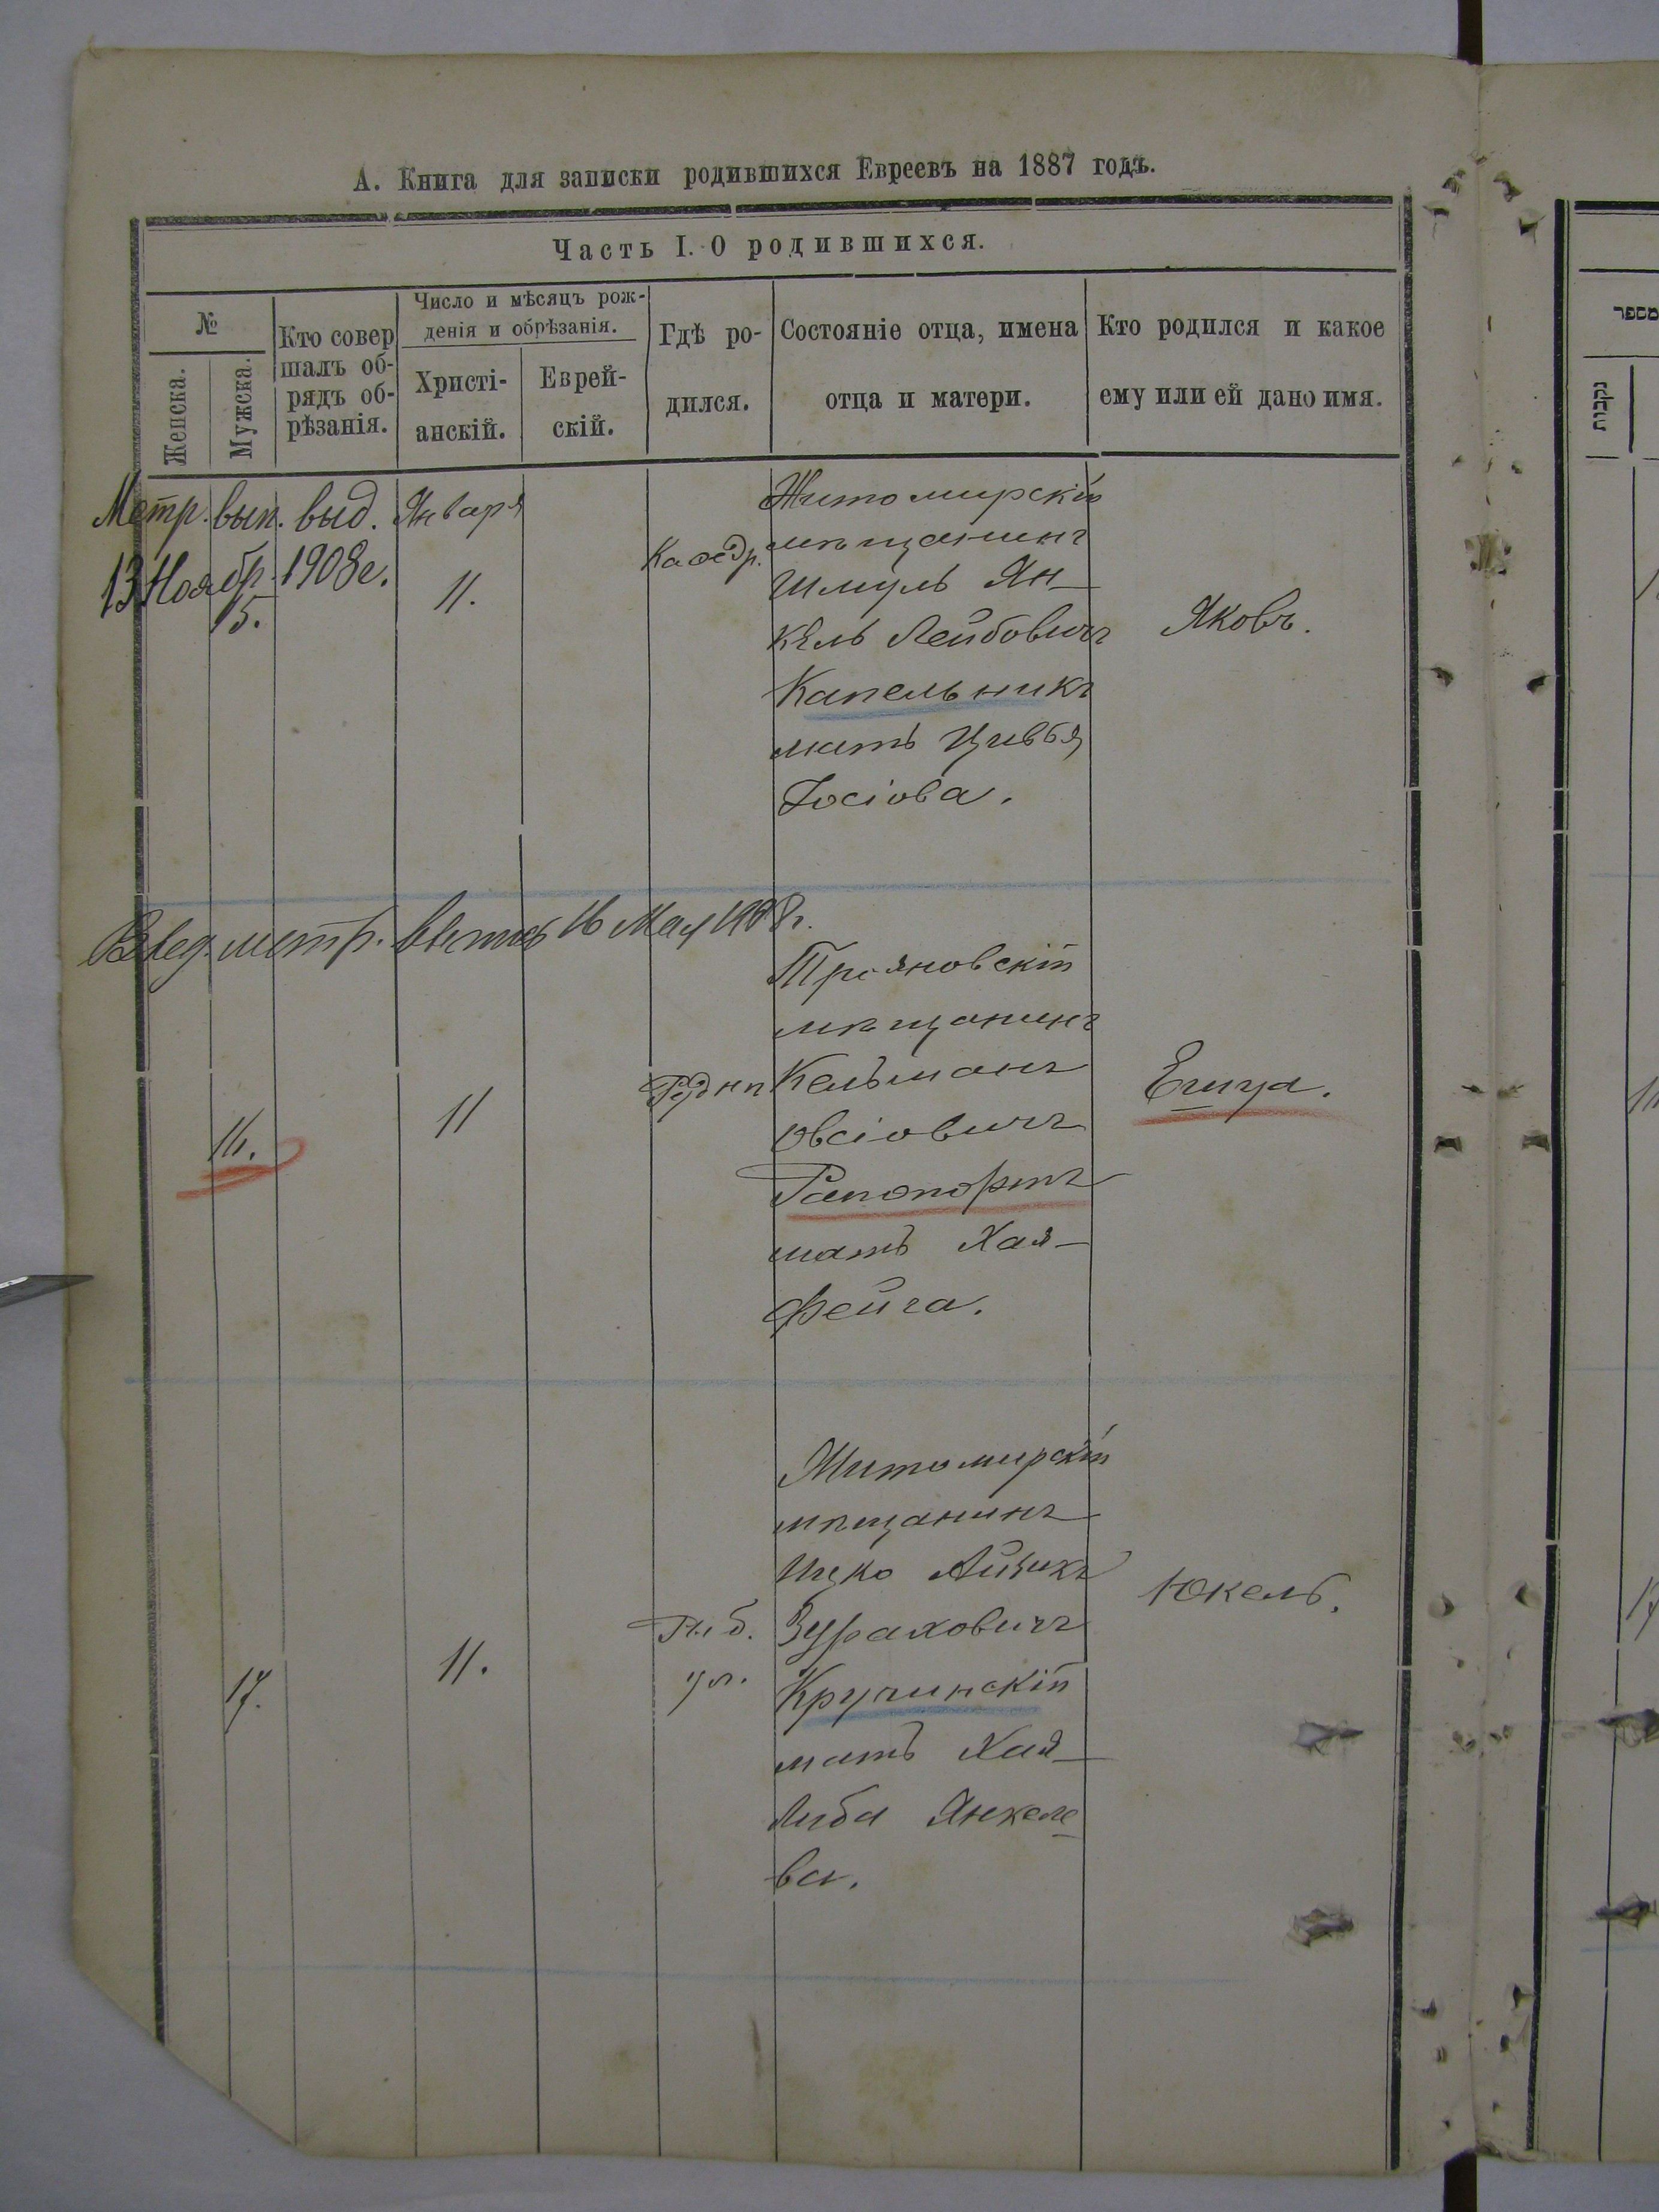 А. Книга для записки родившихся Евреевъ на 1887 годъ.
Часть I. О родившихся.
№
Женска.
Мужска.
Кто совер
шалъ об-
рядъ об-
рѣзанія.
Число и мѣсяцъ рож-
денія и обрѣзанія.
Христі-
анскій.
Еврей-
скій.
Гдѣ ро-
дился.
Состояніе отца, имена
отца и матери.
Кто родился и какое
ему или ей дано имя.
מספר
נקבות
Метр. вып. выд.
13 Ноябр. 1908 г.
15.
Января
11.
Каѳедр.
Житомирскій
мѣщанинъ
Шмуль Ян-
кель Лейбовичъ
Капельникъ
мать Цивья
Іосіова.
Яковъ.
метр. выпись 16 Мая 1908 г.
16.
11
Трояновскій
мѣщанинъ
Кельманъ
Овсіовичъ
Рапопортъ
мать Хая-
Фейга.
17.
11.
Рыб.
ул.
Житомирскій
мѣщанинъ
Ицко Айзикъ
Зураховичъ
Кручинскій
мать Хая-
Либа Янкеле-
ва.
Юкель.
17